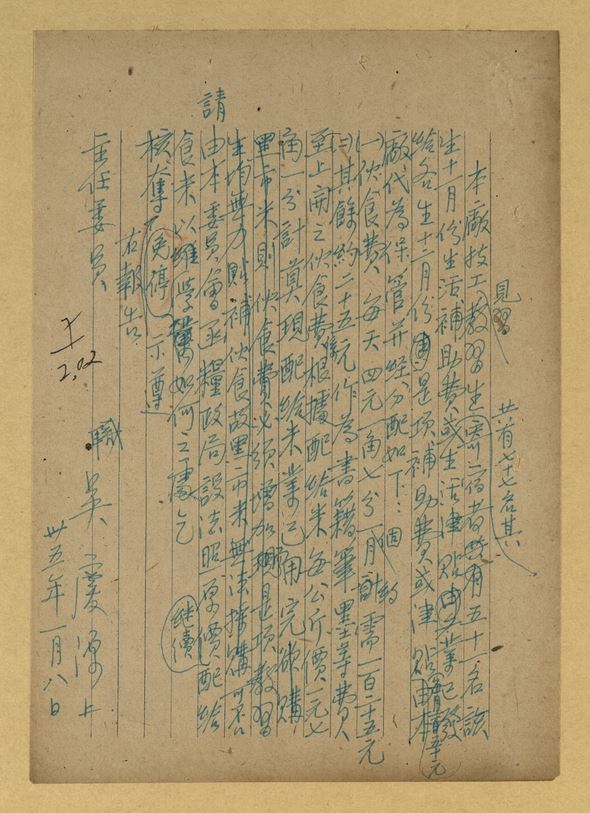 見習
共有七十七名其
本廠技工教習生寄宿者共有五十一名該
生十一月份生活補助費或生活津貼業已發
給各生十二月份是項補助費或津貼由本
廠代為保管并經分配如下：
(一)伙食費 每天四元一角七分一月計約需一百二十五元
(二)其餘約二十五元作為書籍筆墨等費
至上開之伙食費係根據配給米每公斤價一元七
角一分計算現配給米業已用完欲購
黑市米則伙食費必須增加現是項教習
生均無力貼補伙食故黑市米無法採購可否
請
由本委員會函糧政局設法照原價配給
繼續
食米以維學業如何之處乞
核奪
免停
示遵
右報告
主任委員
職 吳慶源上
卅五年一月八日